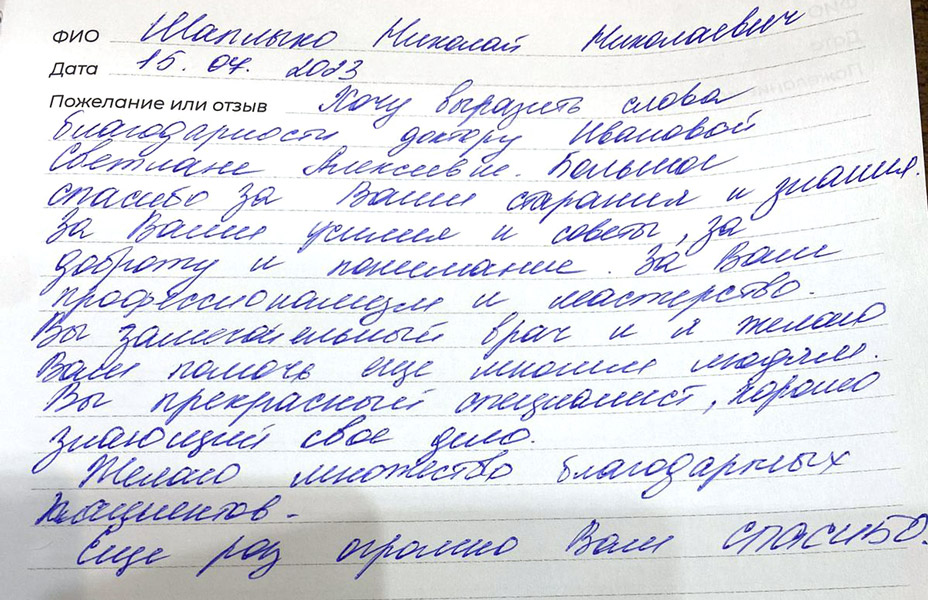 ФИО Шаплыко Николай Николаевич
Дата 15.04.2023
Пожелание или отзыв Хочу выразить слова
благодарности доктору Ивановой
Светлане Алексеевне. Большое
спасибо за Ваши старания и знания.
За Ваши усилия и советы, за
доброту и понимание. За Ваш
профессионализм и мастерство.
Вы замечательный врач и я желаю
Вам помочь еще многим людям.
Вы прекрасный специалист, хорошо
знающий свое дело.
Желаю множество благодарных
пациентов.
Еще раз огромно Вам СПАСИБО.